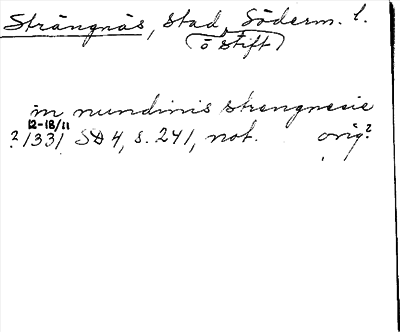 Strängnäs, stad, Söderm. l.
(o stift)
in nundinis strengnesie
12-18/11
? 1331 SD 4, s. 241, not. orig?